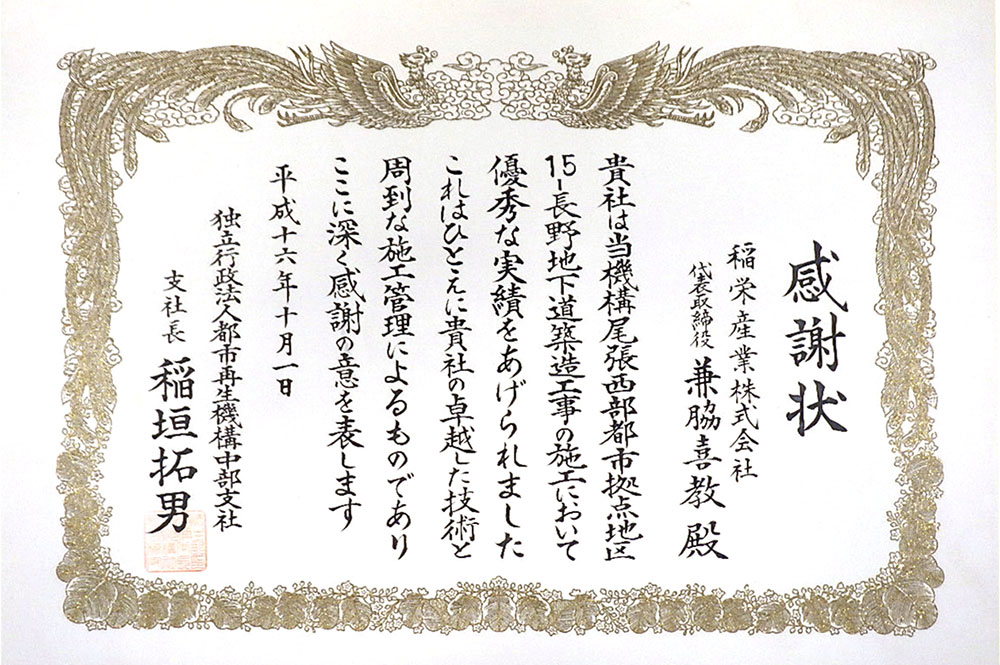 感謝状
稲栄産業株式会社
代表取締役 兼脇喜教 殿
貴社は当機構尾張西部都市拠点地区
15-長野地下道築造工事の施工において
優秀な実績をあげられました
これはひとえに貴社の卓越した技術と
周到な施工管理によるものであり
ここに深く感謝の意を表します
平成十六年十月一日
独立行政法人都市再生機構中部支社
支社長 稲垣拓男